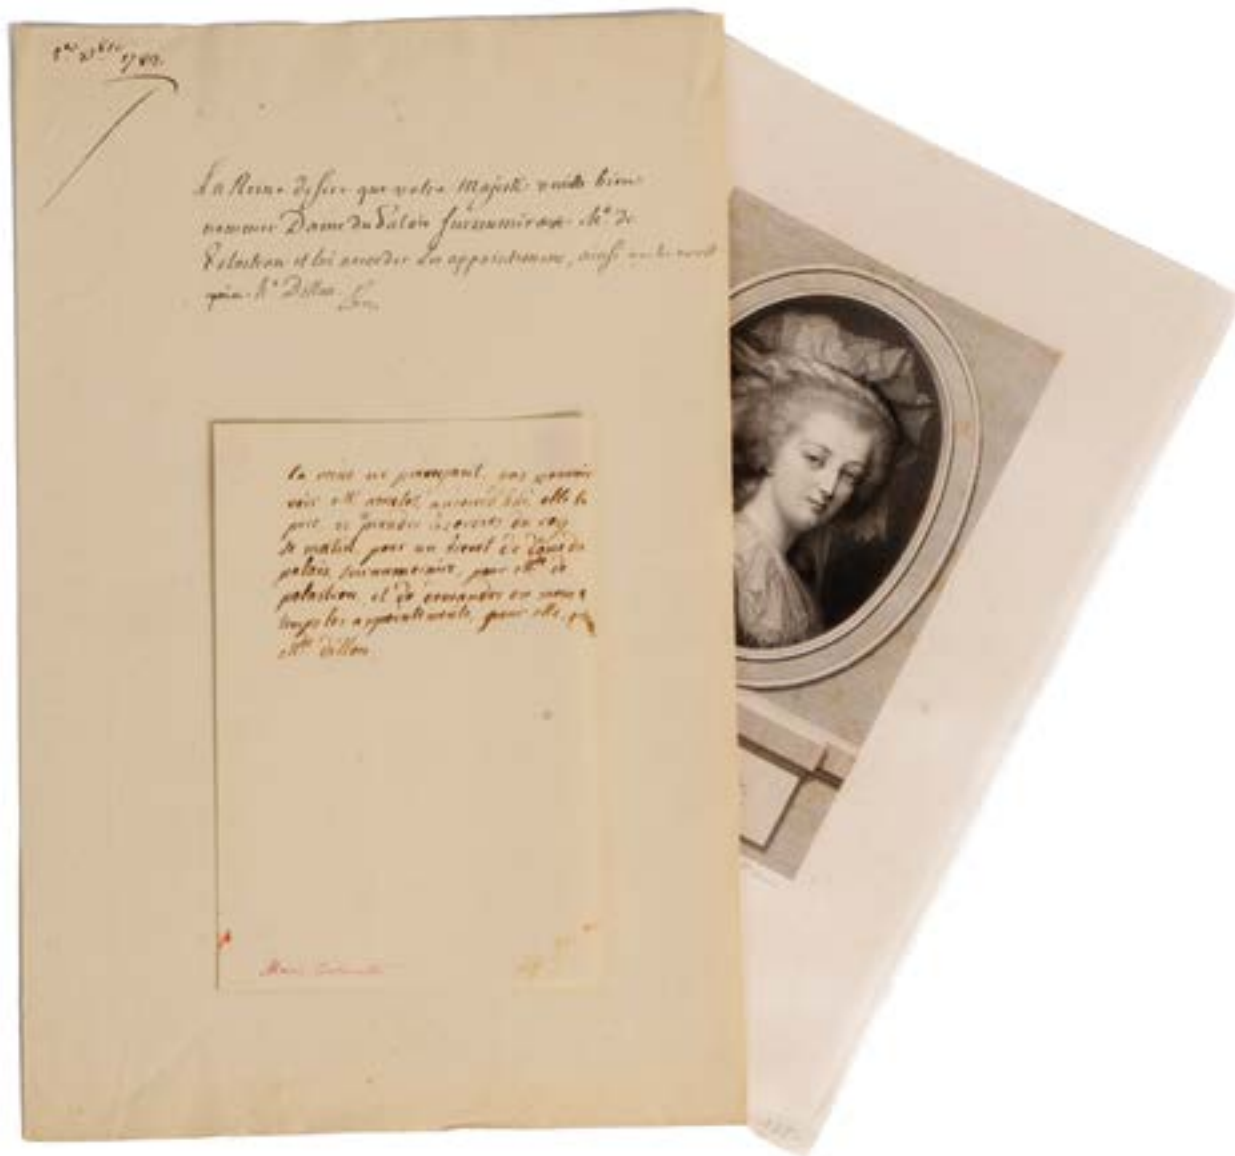 1er Xbre 1782.
La Reine desire que votre Majesté veuille bien
nommer Dame du Palais surnumeraire Me. de
Polastron et lui accorder des appointemens, ainsi
qu'a Me. Dillon.
la reine ne pouvant, pas
voir Mr amelot, aujourd'hui, elle le
prie de prendre les ordres du roy
ce matin, pour un brevet de dame du
palais surnumeraire, pour Mde de
polastron, et de demander en meme
temps les appointements, pour elle, et
Mde dillon.
Marie Antoinette